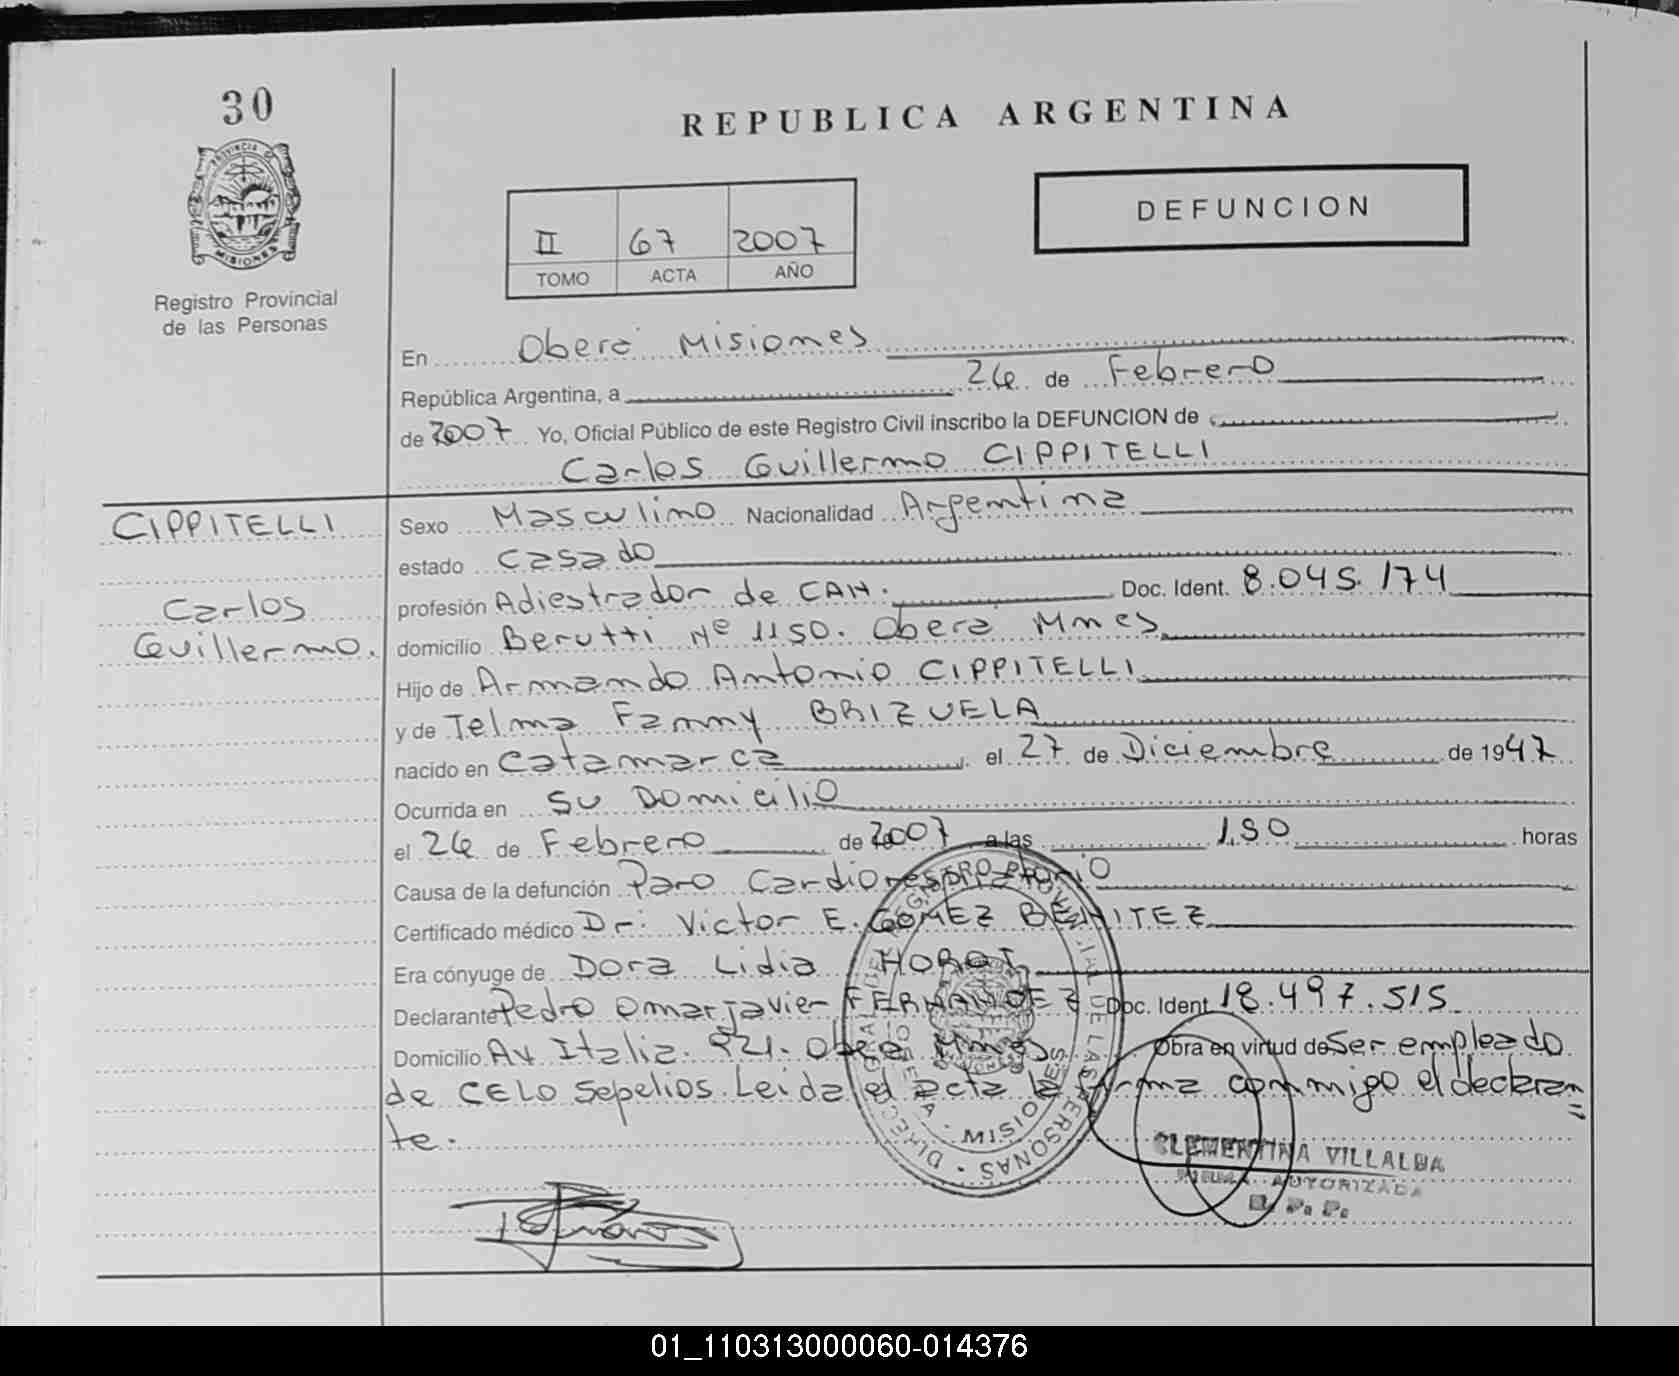 30
REPUBLICA ARGENTINA
PROVINCIA DE
MISIONES
Registro Provincial
de las Personas
DEFUNCION
II 67 2007
TOMO ACTA AÑO
En Oberá Misiones
República Argentina, a 26 de Febrero
de 2007 Yo, Oficial Público de este Registro Civil inscribo la DEFUNCION de
Carlos Guillermo CIPPITELLI
CIPPITELLI
Carlos
Guillermo.
Sexo Masculino Nacionalidad Argentina
estado casado
profesión Adiestrador de CAN. Doc. Ident. 8.045.174
domicilio Berutti Nº 1150. Oberá Mnes
Hijo de Armando Antonio CIPPITELLI
y de Telma Fanny BRIZUELA
nacido en Catamarca el 27 de Diciembre de 1947
Ocurrida en su Domicilio
el 26 de Febrero de 2007 a las 1,50 horas
Causa de la defunción Paro Cardiorespiratorio
Certificado médico Dr: Victor E. GOMEZ BENITEZ
Era cónyuge de Dora Lidia
Declarante Pedro Omar Javier FERNANDEZ Doc. Ident. 18.497.515
Domicilio Av. Italia. 921. Oberá Mnes Obra en virtud de Ser empleado
de CELO Sepelios. Leida el acta la firma conmigo el declaran=
te.
MISIONES
CLEMENTINA VILLALBA
FIRMA AUTORIZADA
R. P. P.
01_110313000060-014376